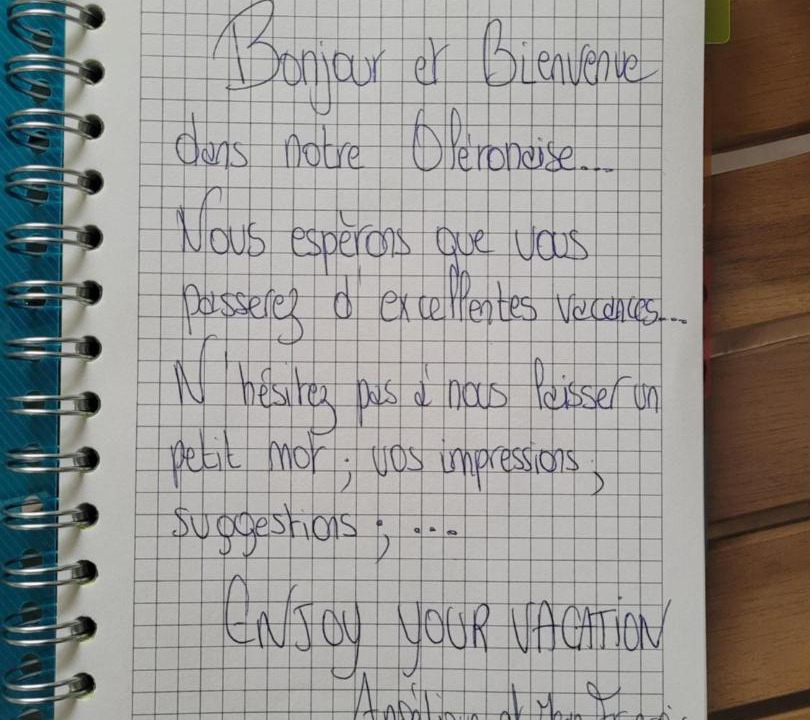 Bonjour et Bienvenue
dans notre Oléronaise...
Nous espèrons que vous
passerez d'excellentes vacances...
N'hésitez pas à nous laisser un
petit mot ; vos impressions ;
suggestions ; ...
ENJOY YOUR VACATION